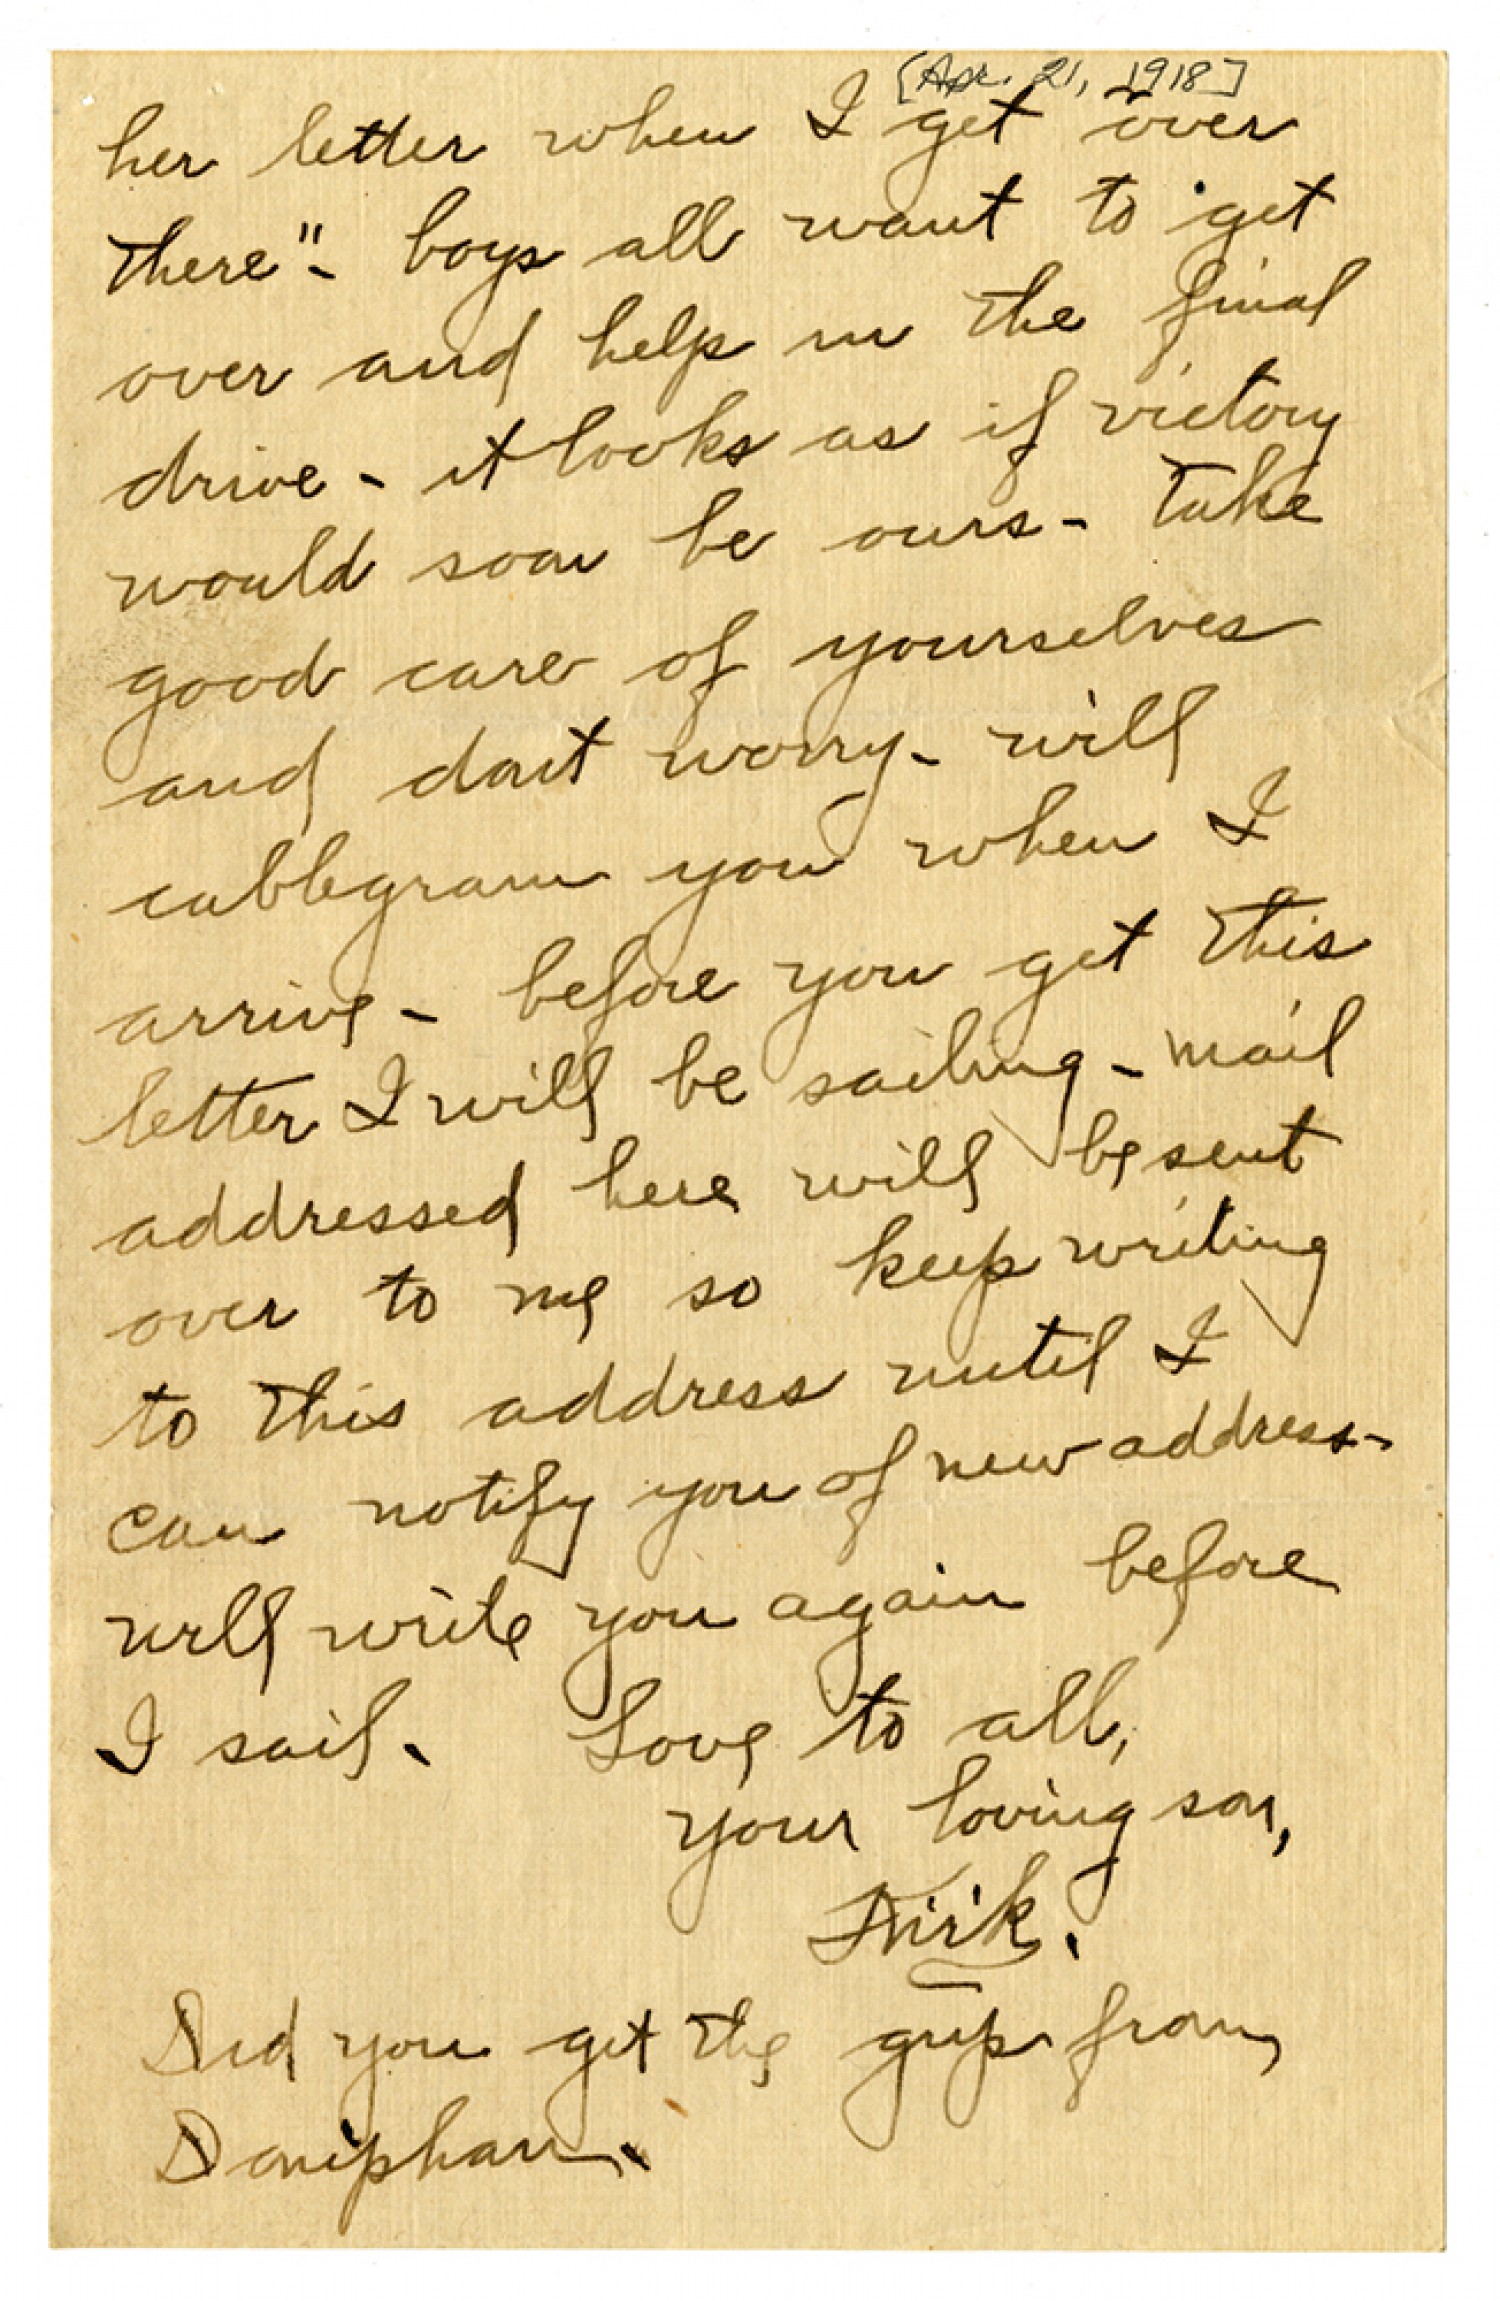 [Apr. 21, 1918]
her letter when I get over
there" - boys all want to get
over and help in the final
drive - it looks as if victory
would soon be ours - take
good care of yourselves
and dont worry - will
cablegram you when I
arrive - before you get this
letter I will be sailing - mail
addressed here will be sent
over to me so keep writing
to this address until I
can notify you of new address -
will write you again before
I sail. Love to all,
your loving son,
Kirk.
Did you get the grip from
Doniphan.